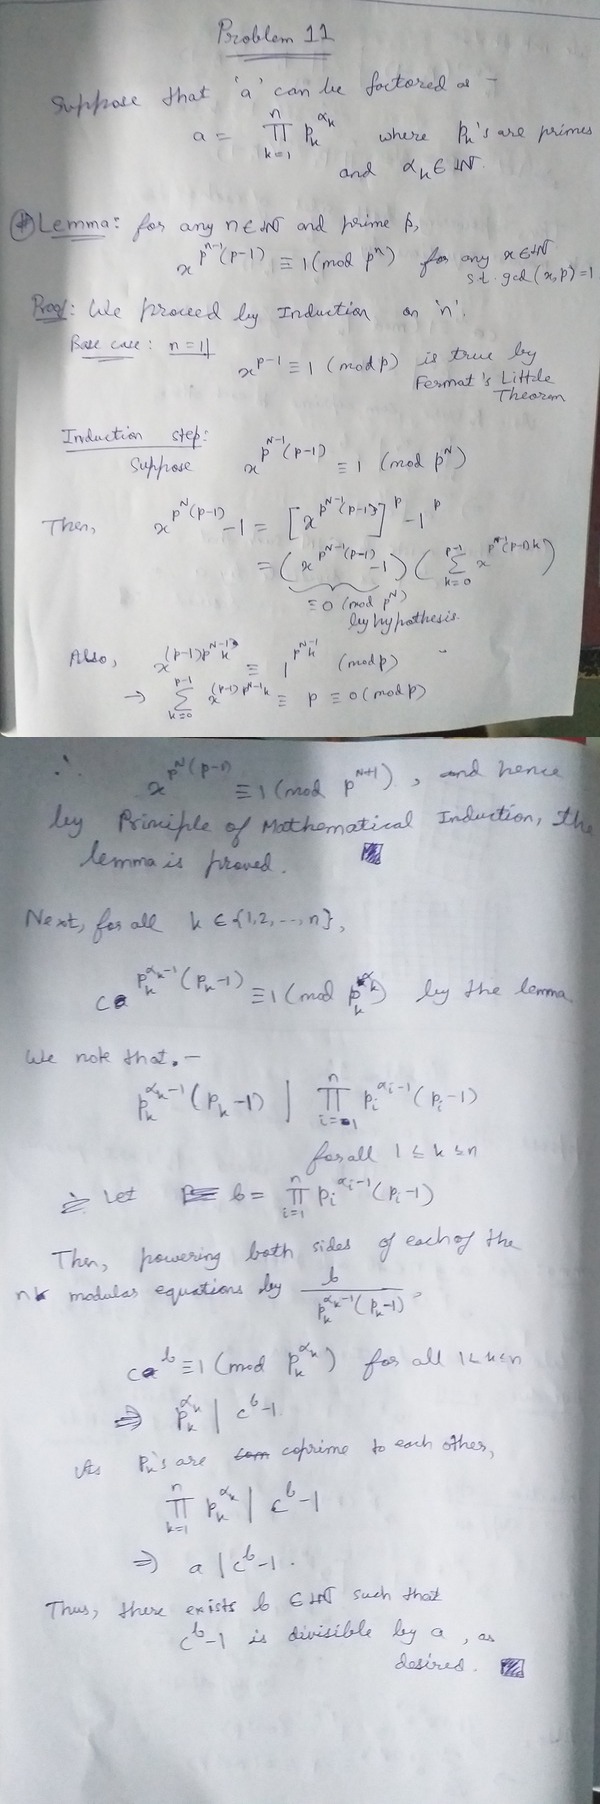 Problem 11
Suppose that 'a' can be factored as –
a = ∏_{k=1}^{n} p_k^{α_k} where p_k's are primes
and α_k ∈ ℕ.
Lemma: for any n ∈ ℕ and prime p,
x^{p^{n-1}(p-1)} ≡ 1 (mod p^n) for any x ∈ ℕ
s.t. gcd(x,p)=1
Proof: We proceed by Induction on 'n'.
Base case: n = 1
x^{p-1} ≡ 1 (mod p) is true by
Fermat's Little
Theorem
Induction step:
Suppose x^{p^{N-1}(p-1)} ≡ 1 (mod p^N)
Then, x^{p^N(p-1)} - 1 = [x^{p^{N-1}(p-1)}]^p - 1^p
= (x^{p^{N-1}(p-1)} - 1) (∑_{k=0}^{p-1} x^{p^{N-1}(p-1)k})
≡ 0 (mod p^N)
by hypothesis.
Also, x^{(p-1)p^{N-1}k} ≡ 1^{p^{N-1}k} (mod p)
→ ∑_{k=0}^{p-1} x^{(p-1)p^{N-1}k} ≡ p ≡ 0 (mod p)
∴ x^{p^N(p-1)} ≡ 1 (mod p^{N+1}), and hence
by Principle of Mathematical Induction, the
lemma is proved.
Next, for all k ∈ {1,2,...,n},
c^{p_k^{α_k-1}(p_k-1)} ≡ 1 (mod p_k^{α_k}) by the lemma.
We note that. –
p_k^{α_k-1}(p_k-1) | ∏_{i=1}^{n} p_i^{α_i-1}(p_i-1)
for all 1 ≤ k ≤ n
Let b = ∏_{i=1}^{n} p_i^{α_i-1}(p_i-1)
Then, powering both sides of each of the
n modular equations by b / (p_k^{α_k-1}(p_k-1)).
c^b ≡ 1 (mod p_k^{α_k}) for all 1 ≤ k ≤ n
⇒ p_k^{α_k} | c^b - 1.
As p_k's are coprime to each other,
∏_{k=1}^{n} p_k^{α_k} | c^b - 1
⇒ a | c^b - 1.
Thus, there exists b ∈ ℕ such that
c^b - 1 is divisible by a, as
desired.